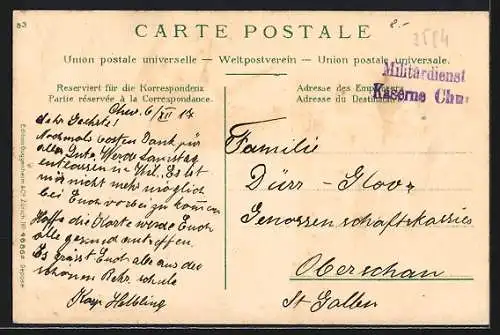 83
8.-
3594
CARTE POSTALE
Union postale universelle — Weltpostverein — Union postale universale.
Militärdienst
Kaserne Chur
Reserviert für die Korrespondenz
Partie réservée à la Correspondance.
Adresse des Empfängers
Adresse du Destinataire
Chur, 6/XII 17
Nochmals besten Dank für
alles Gute. Werde Samstag
entlassen in Es ist
mir nicht mehr möglich
bei Euch vorbei zu kommen
Hoffe die Karte werde Euch
alle gesund antreffen.
Es grüsst Euch alle aus der
schönen Rekr. schule
Helbling
Familie
Dürr-
Genossenschaftskassier
Oberschan
St Gallen
Edition Guggenheim & Co Zürich No 4686# Déposé